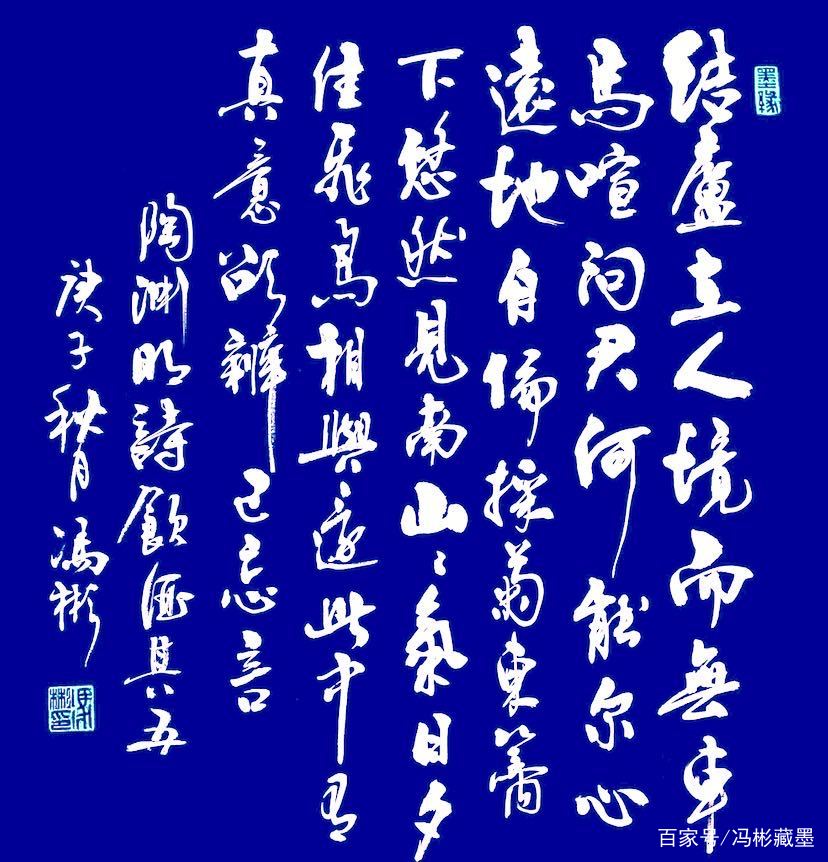 墨缘
结廬在人境而無車
馬喧问君何能尔心
遠地自偏採菊東籬
下悠然見南山〻氣日夕
佳飛鳥相與還此中有
真意欲辨已忘言
陶渊明詩飲酒其五
庚子秋月馮彬
馮彬印
百家号/冯彬藏墨